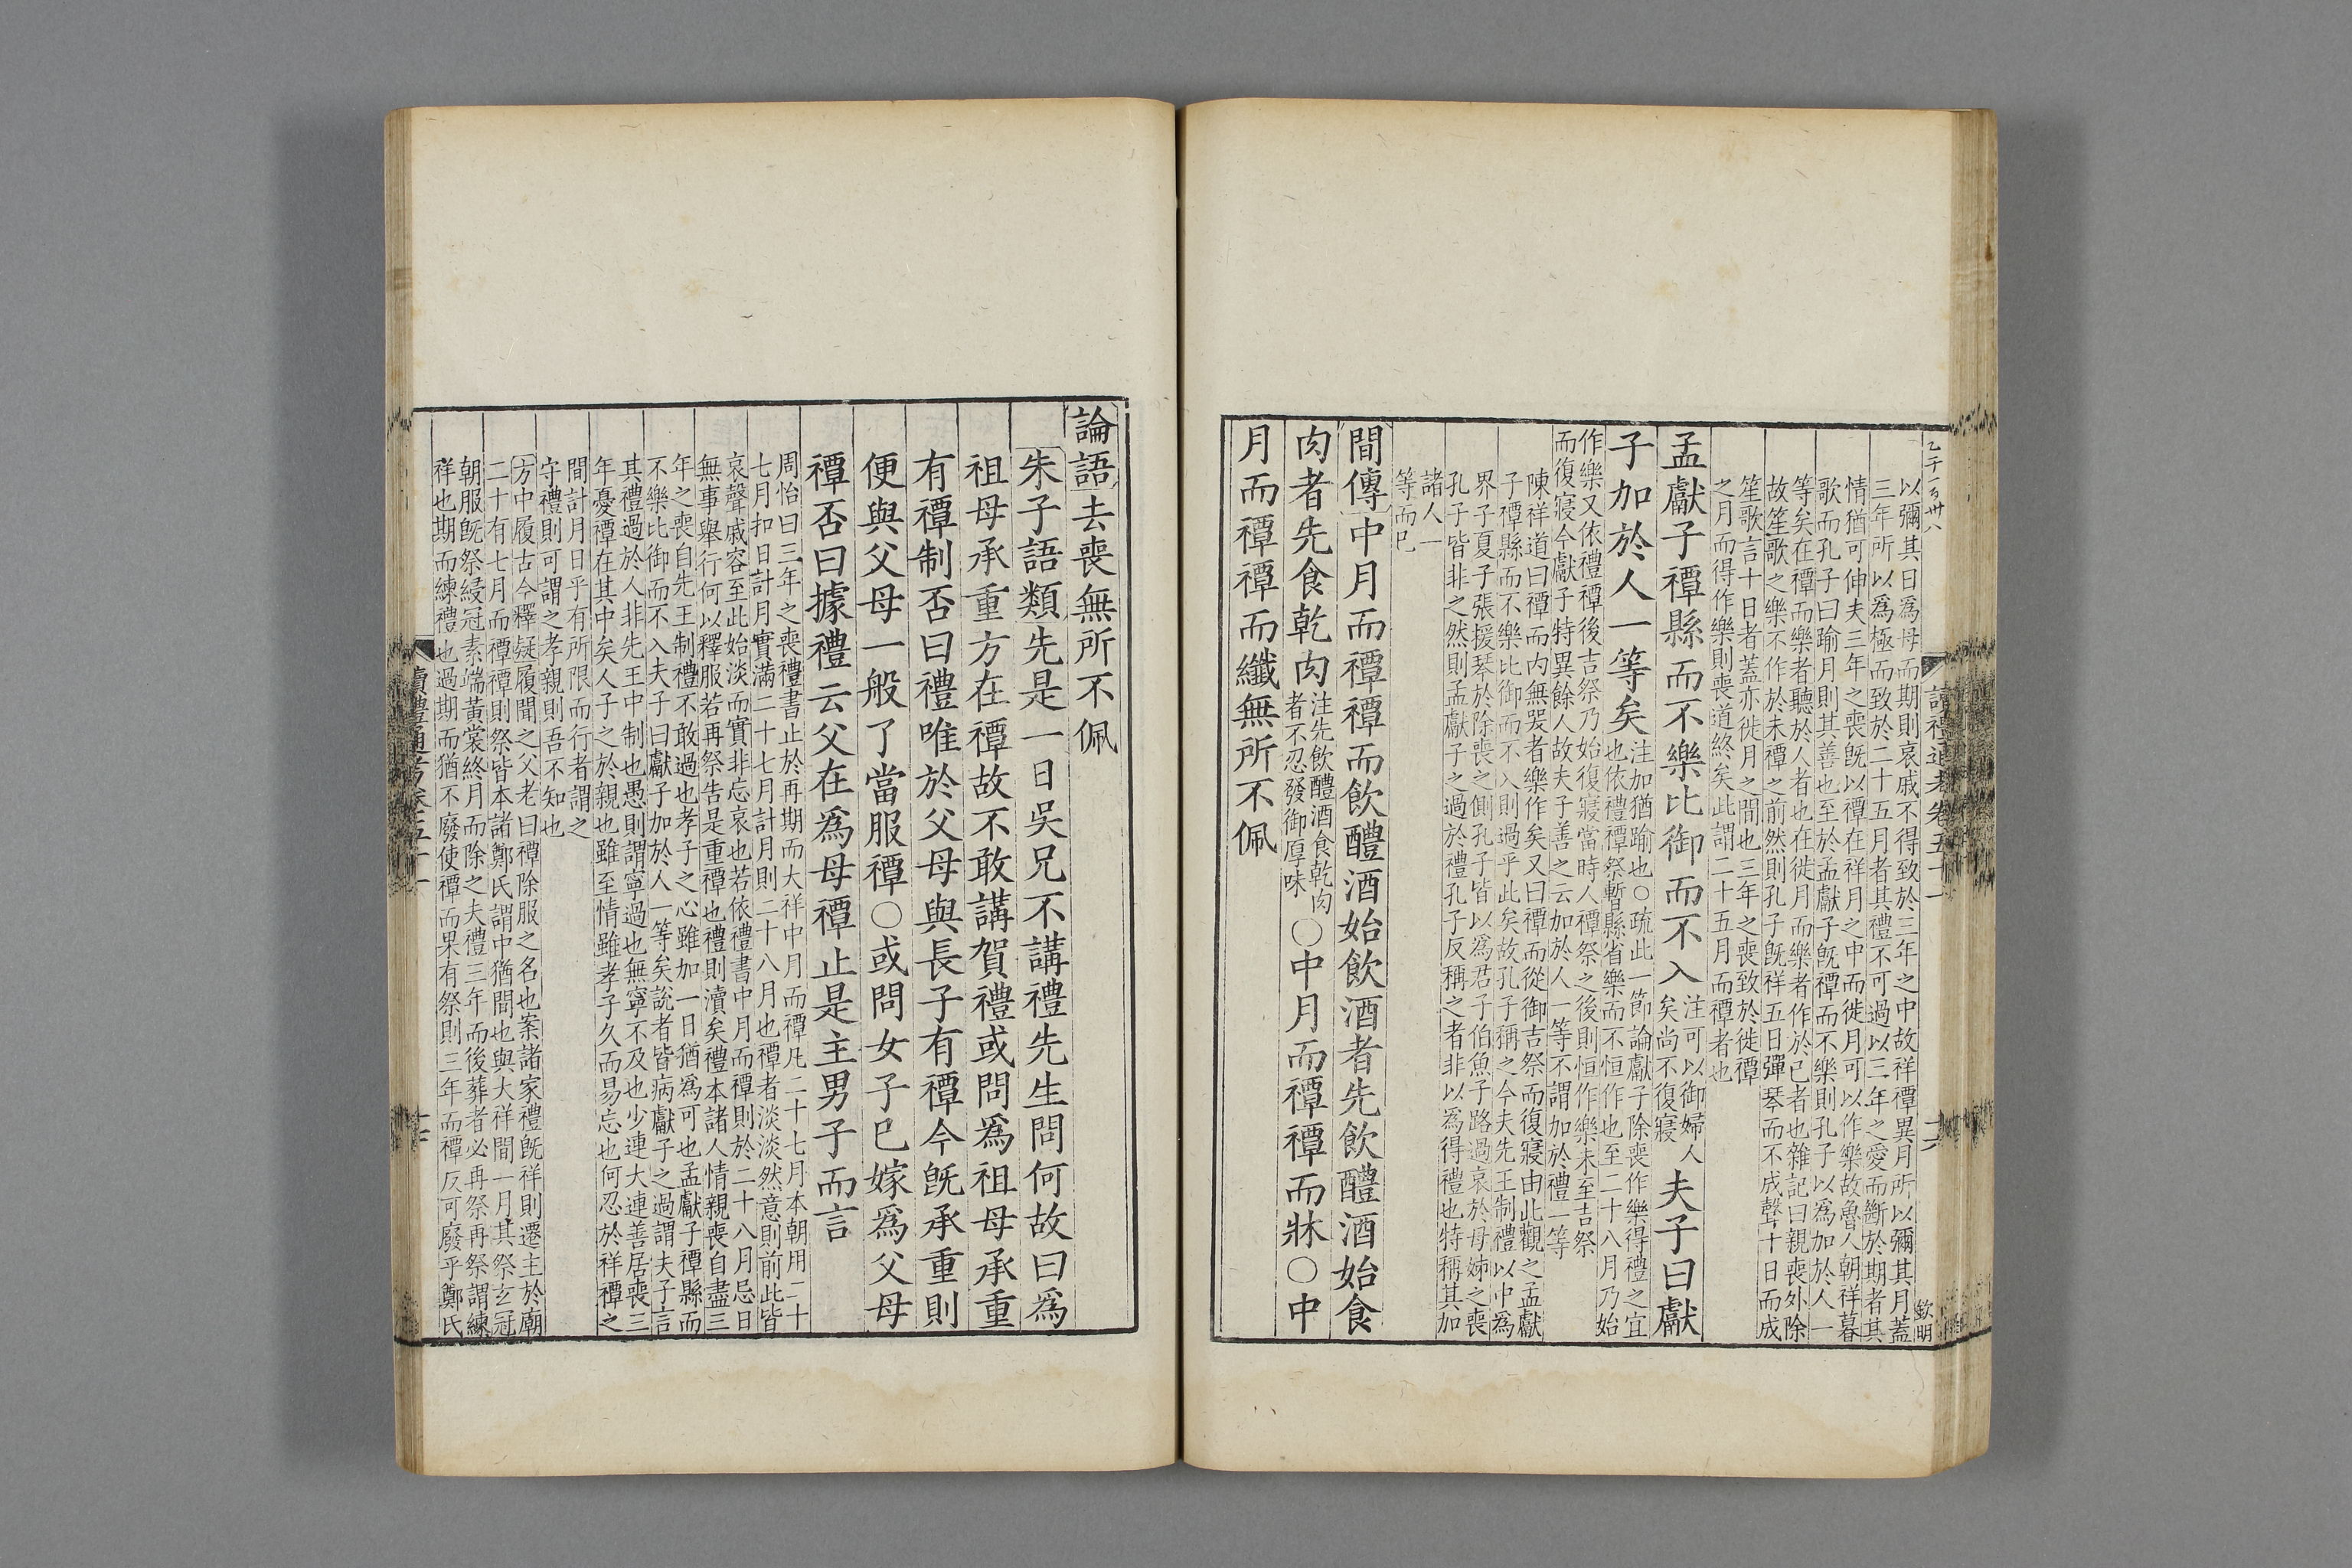 以彌其日爲母而期則哀戚不得致於三年之中故祥禫異月所以彌其月蓋
三年所以爲極而致於二十五月者其禮不可過以三年之愛而斷於期者其
情猶可伸夫三年之喪旣以禫在祥月之中而徙月可以作樂故魯人朝祥暮
歌而孔子曰踰月則其善也至於孟獻子旣禫而不樂則孔子以爲加於人一
等矣在禫而樂者聽於人者也在徙月而樂者作於己者也雜記曰親喪外除
故笙歌之樂不作於未禫之前然則孔子旣祥五日彈琴而不成聲十日而成
笙歌言十日者蓋亦徙月之間也三年之喪致於徙禫
之月而得作樂則喪道終矣此謂二十五月而禫者也
孟獻子禫縣而不樂比御而不入
注可以御婦人
矣尚不復寢
夫子曰獻
子加於人一等矣
注加猶踰也○疏此一節論獻子除喪作樂得禮之宜
也依禮禫祭暫縣省樂而不恒作也至二十八月乃始
作樂又依禮禫後吉祭乃始復寢當時人禫祭之後則恒作樂未至吉祭
而復寢今獻子特異餘人故夫子善之云加於人一等不謂加於禮一等
陳祥道曰禫而内無哭者樂作矣又曰禫而從御吉祭而復寢由此觀之孟獻
子禫縣而不樂比御而不入則過乎此矣故孔子稱之今夫先王制禮以中爲
界子夏子張援琴於除喪之側孔子皆以爲君子伯魚子路過哀於母姊之喪
孔子皆非之然則孟獻子之過於禮孔子反稱之者非以爲得禮也特稱其加
諸人一
等而已
間傳中月而禫禫而飲醴酒始飲酒者先飲醴酒始食
肉者先食乾肉
注先飲醴酒食乾肉
者不忍發御厚味
○中月而禫禫而牀○中
月而禫禫而纖無所不佩
讀禮通考卷五十一
十六
欽明
論語去喪無所不佩
朱子語類先是一日吳兄不講禮先生問何故曰爲
祖母承重方在禫故不敢講賀禮或問爲祖母承重
有禫制否曰禮唯於父母與長子有禫今旣承重則
便與父母一般了當服禫○或問女子已嫁爲父母
禫否曰據禮云父在爲母禫止是主男子而言
周怡曰三年之喪禮書止於再期而大祥中月而禫凡二十七月本朝用二十
七月扣日計月實滿二十七月計月則二十八月也禫者淡淡然意則前此皆
哀聲戚容至此始淡而實非忘哀也若依禮書中月而禫則於二十八月忌日
無事舉行何以釋服若再祭告是重禫也禮則瀆矣禮本諸人情親喪自盡三
年之喪自先王制禮不敢過也孝子之心雖加一日猶爲可也孟獻子禫縣而
不樂比御而不入夫子曰獻子加於人一等矣說者皆病獻子之過謂夫子言
其禮過於人非先王中制也愚則謂寧過也無寧不及也少連大連善居喪三
年憂禫在其中矣人子之於親也雖至情雖孝子久而易忘也何忍於祥禫之
間計月日乎有所限而行者謂之
守禮則可謂之孝親則吾不知也
方中履古今釋疑履聞之父老曰禫除服之名也案諸家禮旣祥則遷主於廟
二十有七月而禫禫則祭皆本諸鄭氏謂中猶間也與大祥間一月其祭玄冠
朝服旣祭綅冠素端黃裳終月而除之夫禮三年而後葬者必再祭再祭謂練
祥也期而練禮也過期而猶不廢使禫而果有祭則三年而禫反可廢乎鄭氏